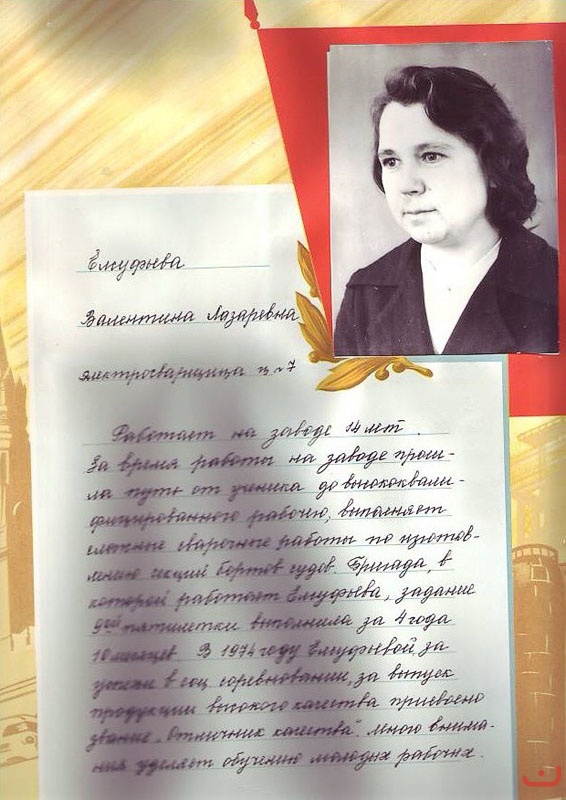 Елуфьева
Валентина Лазаревна
электросварщица ц. №7
Работает на заводе 14 лет.
За время работы на заводе прош-
ла путь от ученика до высококвали-
фицированного рабочего, выполняет
сложные сварочные работы по изготов-
лению секций бортов судов. Бригада, в
которой работает Елуфьева, задание
9ой пятилетки выполнила за 4 года
10 месяцев. В 1974 году Елуфьевой, за
успехи в соц. соревновании, за выпуск
продукции высокого качества присвоено
звание „Отличник качества". Много внима-
ния уделяет обучению молодых рабочих.